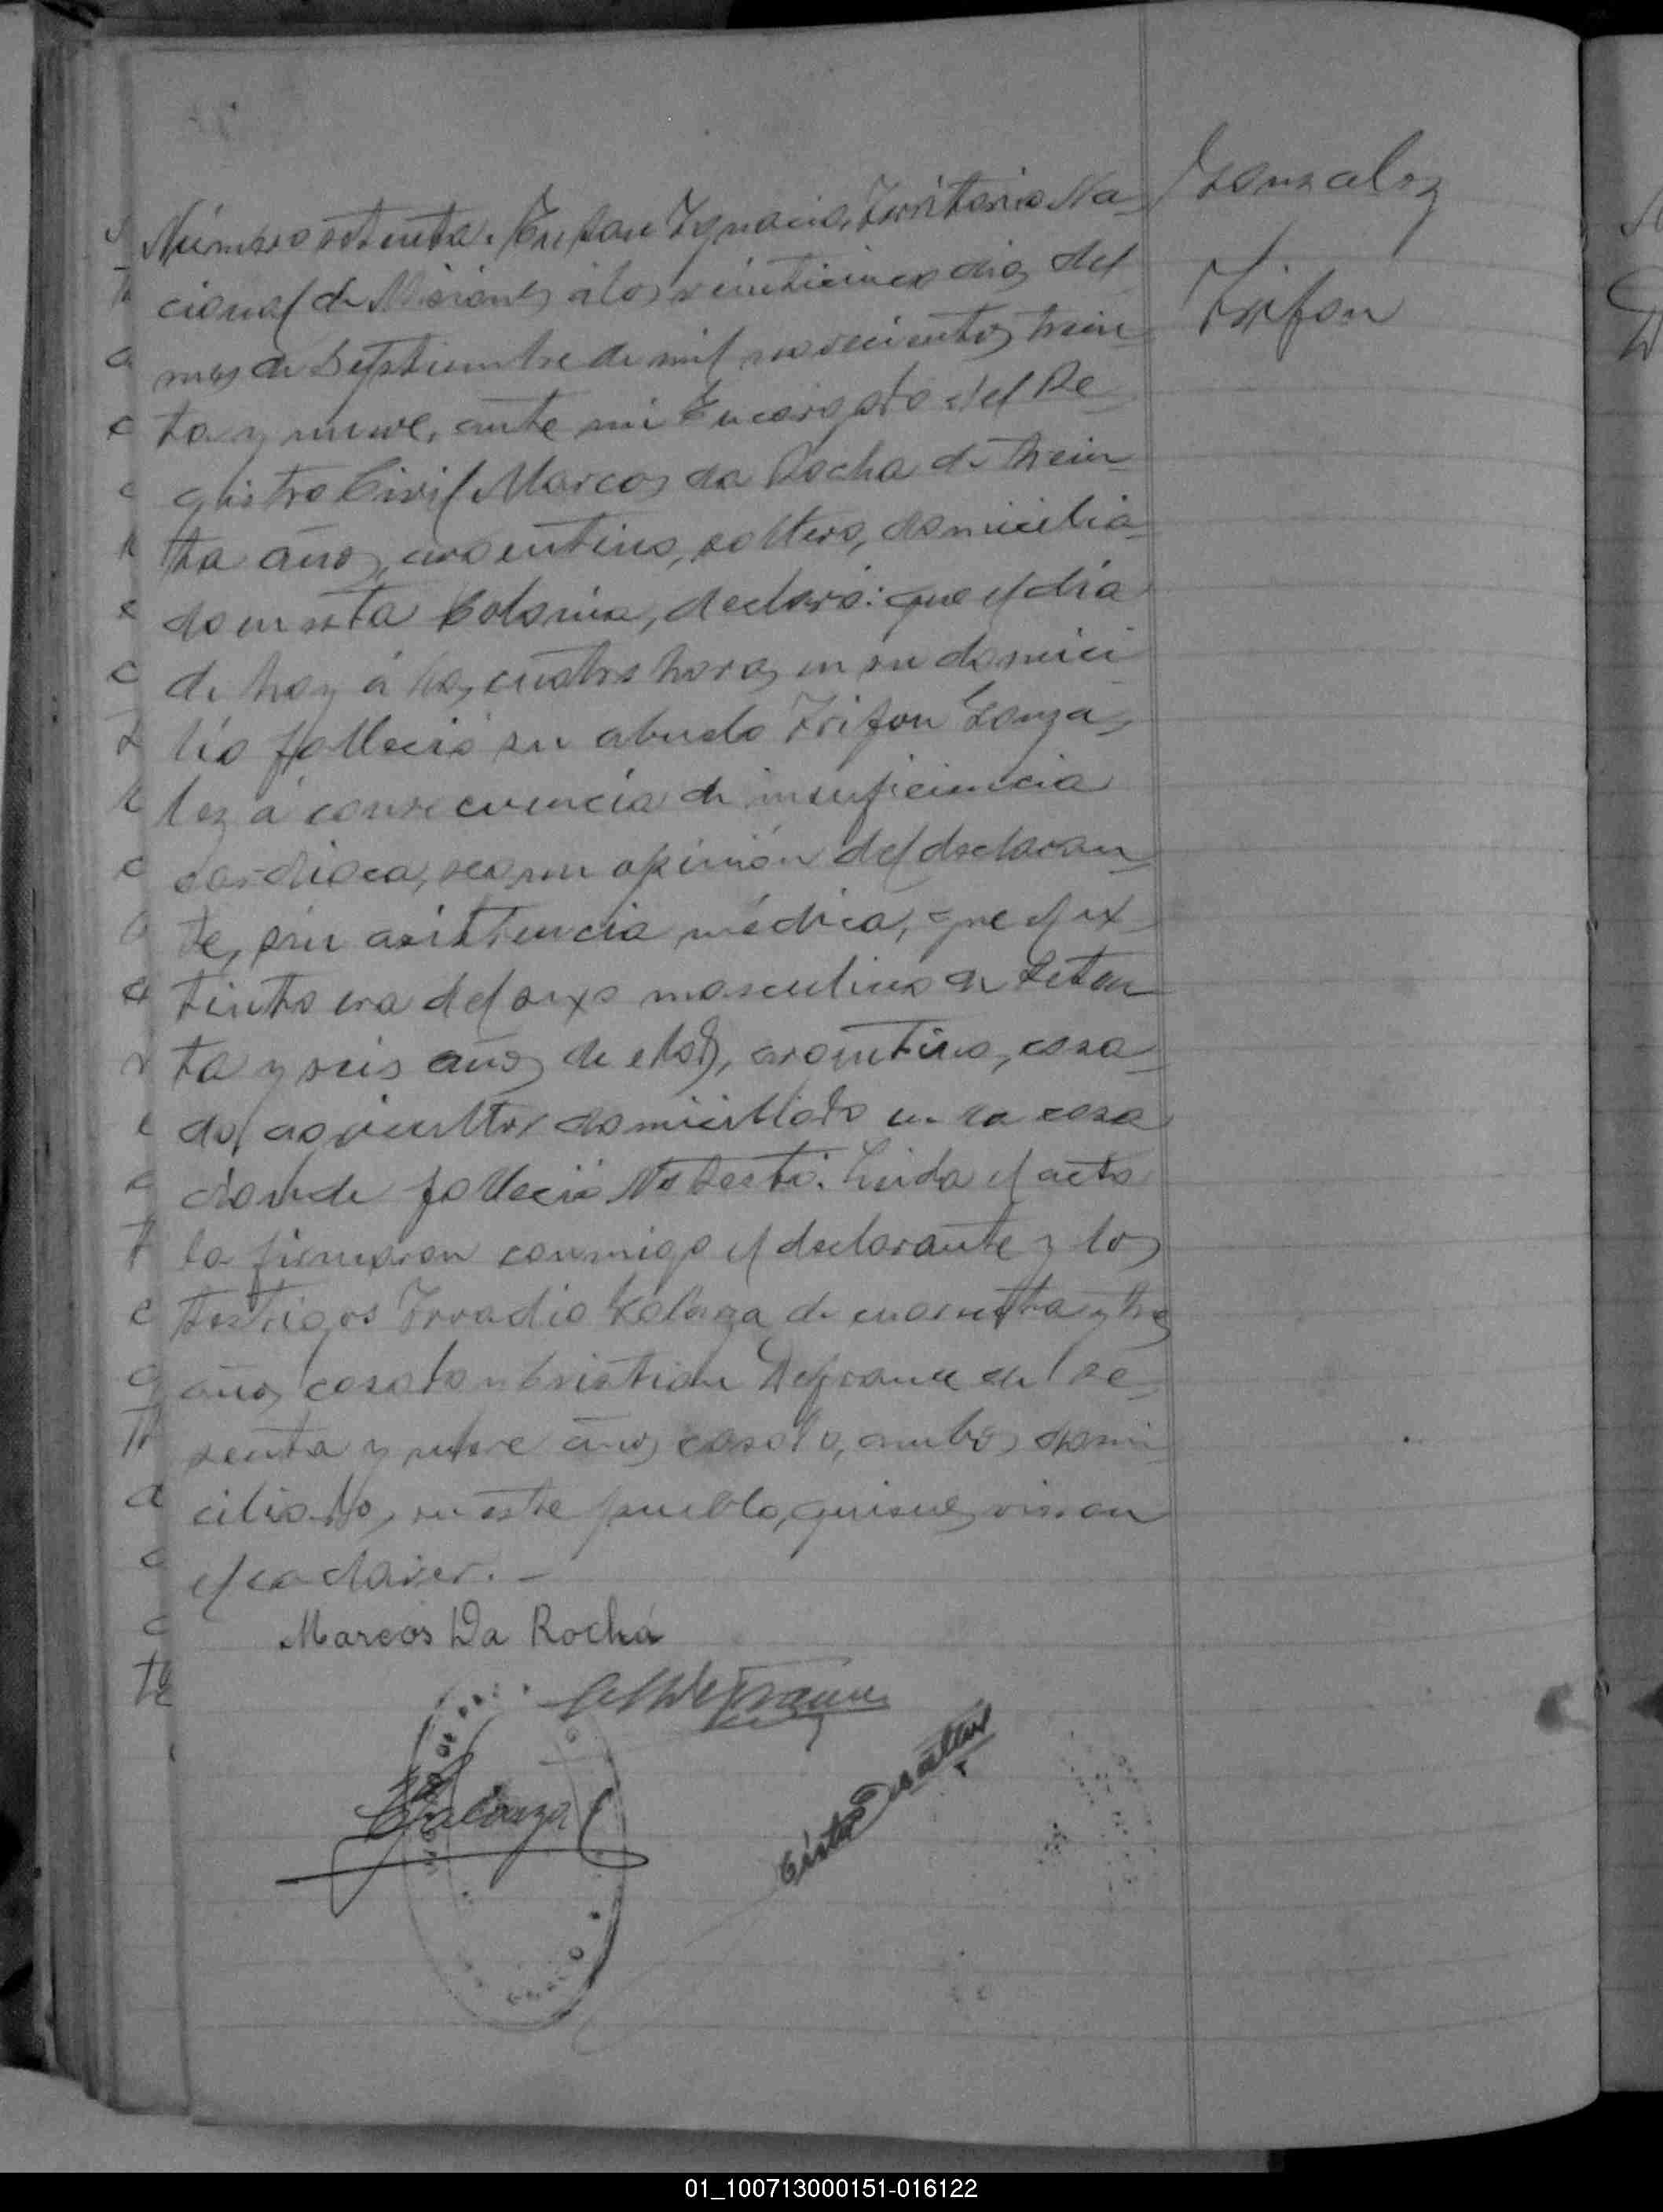 Gonzalez
Trifon
Número setenta. En San Ignacio, Territorio Na-
cional de Misiones a los veinticinco dias del
mes de Septiembre de mil novecientos trein-
ta y nueve, ante mi Encargado del Re-
gistro Civil Marcos da Rocha de trein-
ta años, argentino, soltero, domicilia-
do en esta Colonia, declaró: que el día
de hoy á las cuatro horas en su domici-
lio falleció su abuelo Trifon Gonza-
lez á consecuencia de insuficiencia
cardiaca, segun opinión del declaran-
te, sin asistencia médica, que el ex-
tinto era del sexo masculino de seten-
ta y seis años de edad, argentino, casa-
do, agricultor domiciliado en la casa
donde falleció No testó. Leida el acta
la firmaron conmigo el declarante y los
testigos Galarza de cuarenta y tres
años, casado y Cristian Defranc de se-
senta y nueve años casado, ambos domi-
ciliados en este pueblo, quienes vieron
el cadaver. -
Marcos Da Rocha
01_100713000151-016122